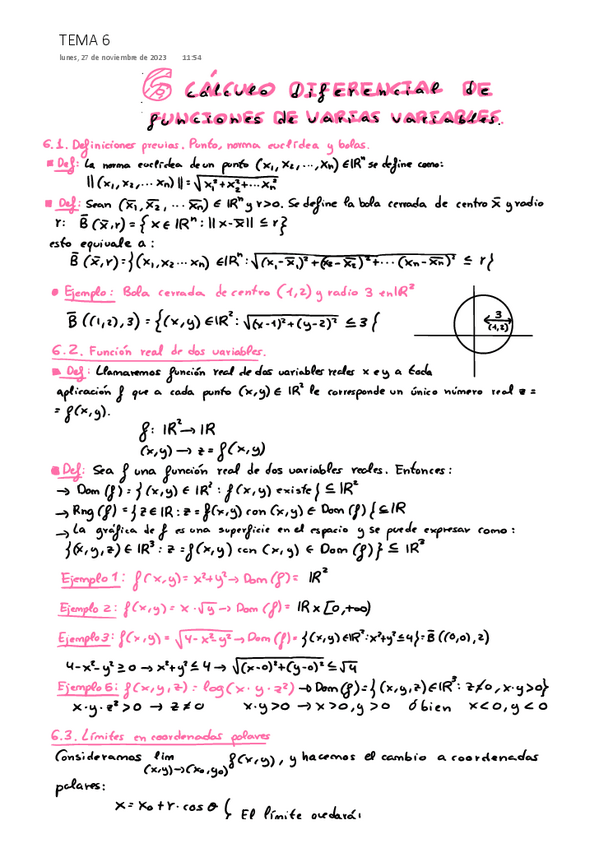 TEMA 6
lunes, 27 de noviembre de 2023 11:54
6 CÁLCULO DIFERENCIAL DE
FUNCIONES DE VARIAS VARIABLES.
6.1. Definiciones previas. Punto, norma euclídea y bolas.
Def: La norma euclídea de un punto (x₁, x₂, ..., xₙ) ∈ ℝⁿ se define como:
||(x₁, x₂, ... xₙ)|| = √(x₁² + x₂² + ... xₙ²)
Def: Sean (x̄₁, x̄₂, ... x̄ₙ) ∈ ℝⁿ y r>0. Se define la bola cerrada de centro x̄ y radio
r: B̄(x̄, r) = {x ∈ ℝⁿ : ||x - x̄|| ≤ r}
esto equivale a:
B̄(x̄, r) = {(x₁, x₂ ... xₙ) ∈ ℝⁿ : √((x₁ - x̄₁)² + (x₂ - x̄₂)² + ... (xₙ - x̄ₙ)²) ≤ r}
Ejemplo: Bola cerrada de centro (1,2) y radio 3 en ℝ²
B̄((1,2), 3) = {(x,y) ∈ ℝ² : √((x-1)² + (y-2)²) ≤ 3}
3
(1,2)
6.2. Función real de dos variables.
Def: Llamaremos función real de dos variables reales x e y a toda
aplicación f que a cada punto (x,y) ∈ ℝ² le corresponde un único número real z =
= f(x,y).
f: ℝ² → ℝ
(x,y) → z = f(x,y)
Def: Sea f una función real de dos variables reales. Entonces:
→ Dom(f) = {(x,y) ∈ ℝ² : f(x,y) existe} ⊆ ℝ²
→ Rng(f) = {z ∈ ℝ : z = f(x,y) con (x,y) ∈ Dom(f)} ⊆ ℝ
→ La gráfica de f es una superficie en el espacio y se puede expresar como:
{(x,y,z) ∈ ℝ³ : z = f(x,y) con (x,y) ∈ Dom(f)} ⊆ ℝ³
Ejemplo 1: f(x,y) = x² + y² → Dom(f) = ℝ²
Ejemplo 2: f(x,y) = x · √y → Dom(f) = ℝ x [0, +∞)
Ejemplo 3: f(x,y) = √(4 - x² - y²) → Dom(f) = {(x,y) ∈ ℝ² : x² + y² ≤ 4} = B̄((0,0), 2)
4 - x² - y² ≥ 0 → x² + y² ≤ 4 → √((x-0)² + (y-0)²) ≤ √4
Ejemplo 6: f(x,y,z) = log(x · y · z²) → Dom(f) = {(x,y,z) ∈ ℝ³ : z ≠ 0, x·y > 0}
x · y · z² > 0 → z ≠ 0 x · y > 0 → x > 0, y > 0 ó bien x < 0, y < 0
6.3. Límites en coordenadas polares
Consideramos lim f(x,y), y hacemos el cambio a coordenadas
(x,y)→(x₀,y₀)
polares:
x = x₀ + r · cos θ { El límite quedará: